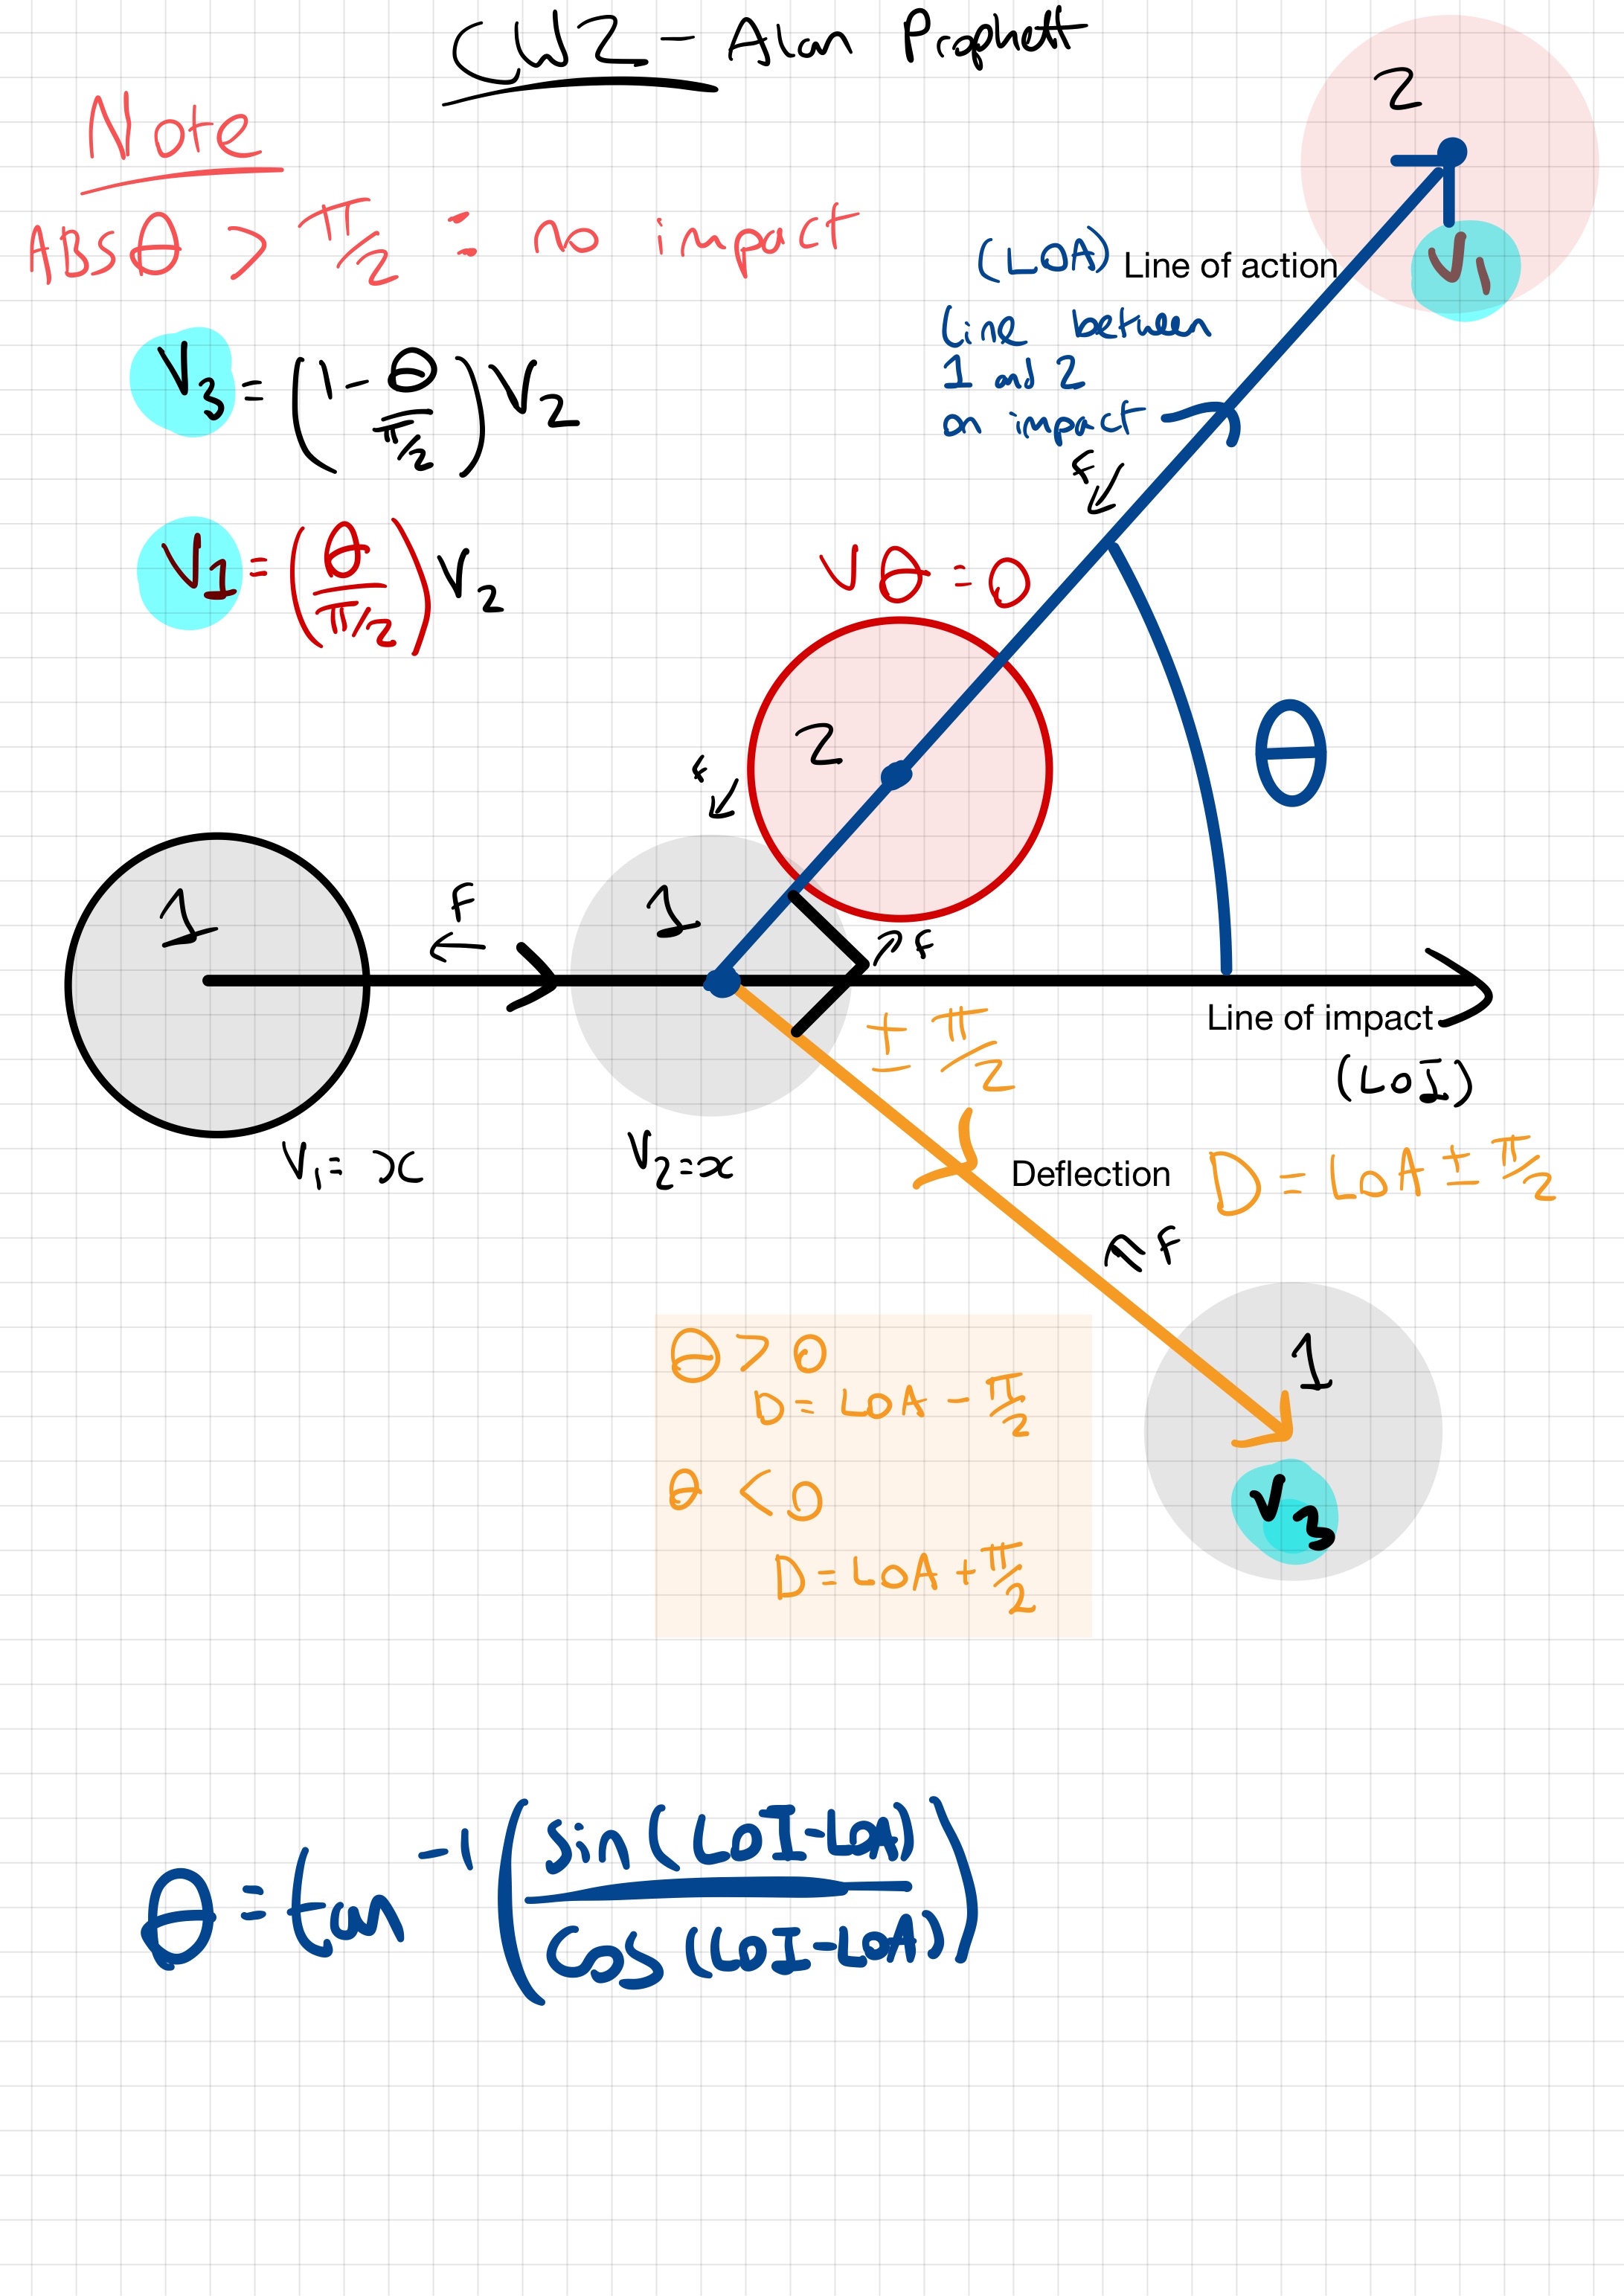 CW2 - Alan Prophett
Note
ABS θ > π/2 = no impact
V3 = (1 - θ/(π/2)) V2
V1 = (θ/(π/2)) V2
2
V1
(LOA) Line of action
Line between
1 and 2
on impact
F
Vθ = 0
2
F
θ
1
F
1
F
Line of impact
(LOI)
± π/2
V1 = x
V2 = x
Deflection
D = LOA ± π/2
F
1
V3
θ > 0
D = LOA - π/2
θ < 0
D = LOA + π/2
θ = tan⁻¹ (sin (LOI-LOA) / cos (LOI-LOA))